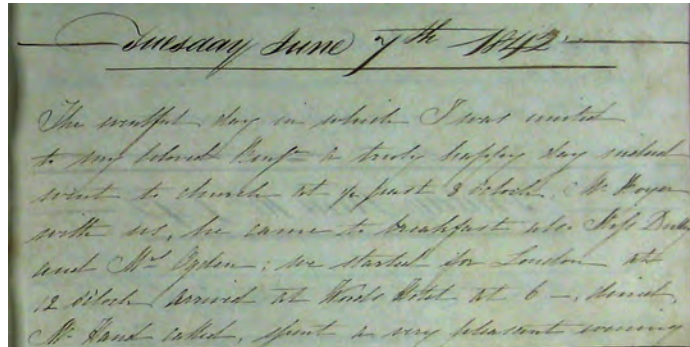 Tuesday June 7th 1842
The eventful day in which I was united
to my beloved Benjn a truly happy day indeed
went to church at ½ past 8 o'clock, Mr Hoyer
with us, he came to breakfast also Miss
and Mrs Ogden; we started for London at
12 o'clock arrived at Hotel at 6 –, dined,
Mr Hand called, spent a very pleasant evening